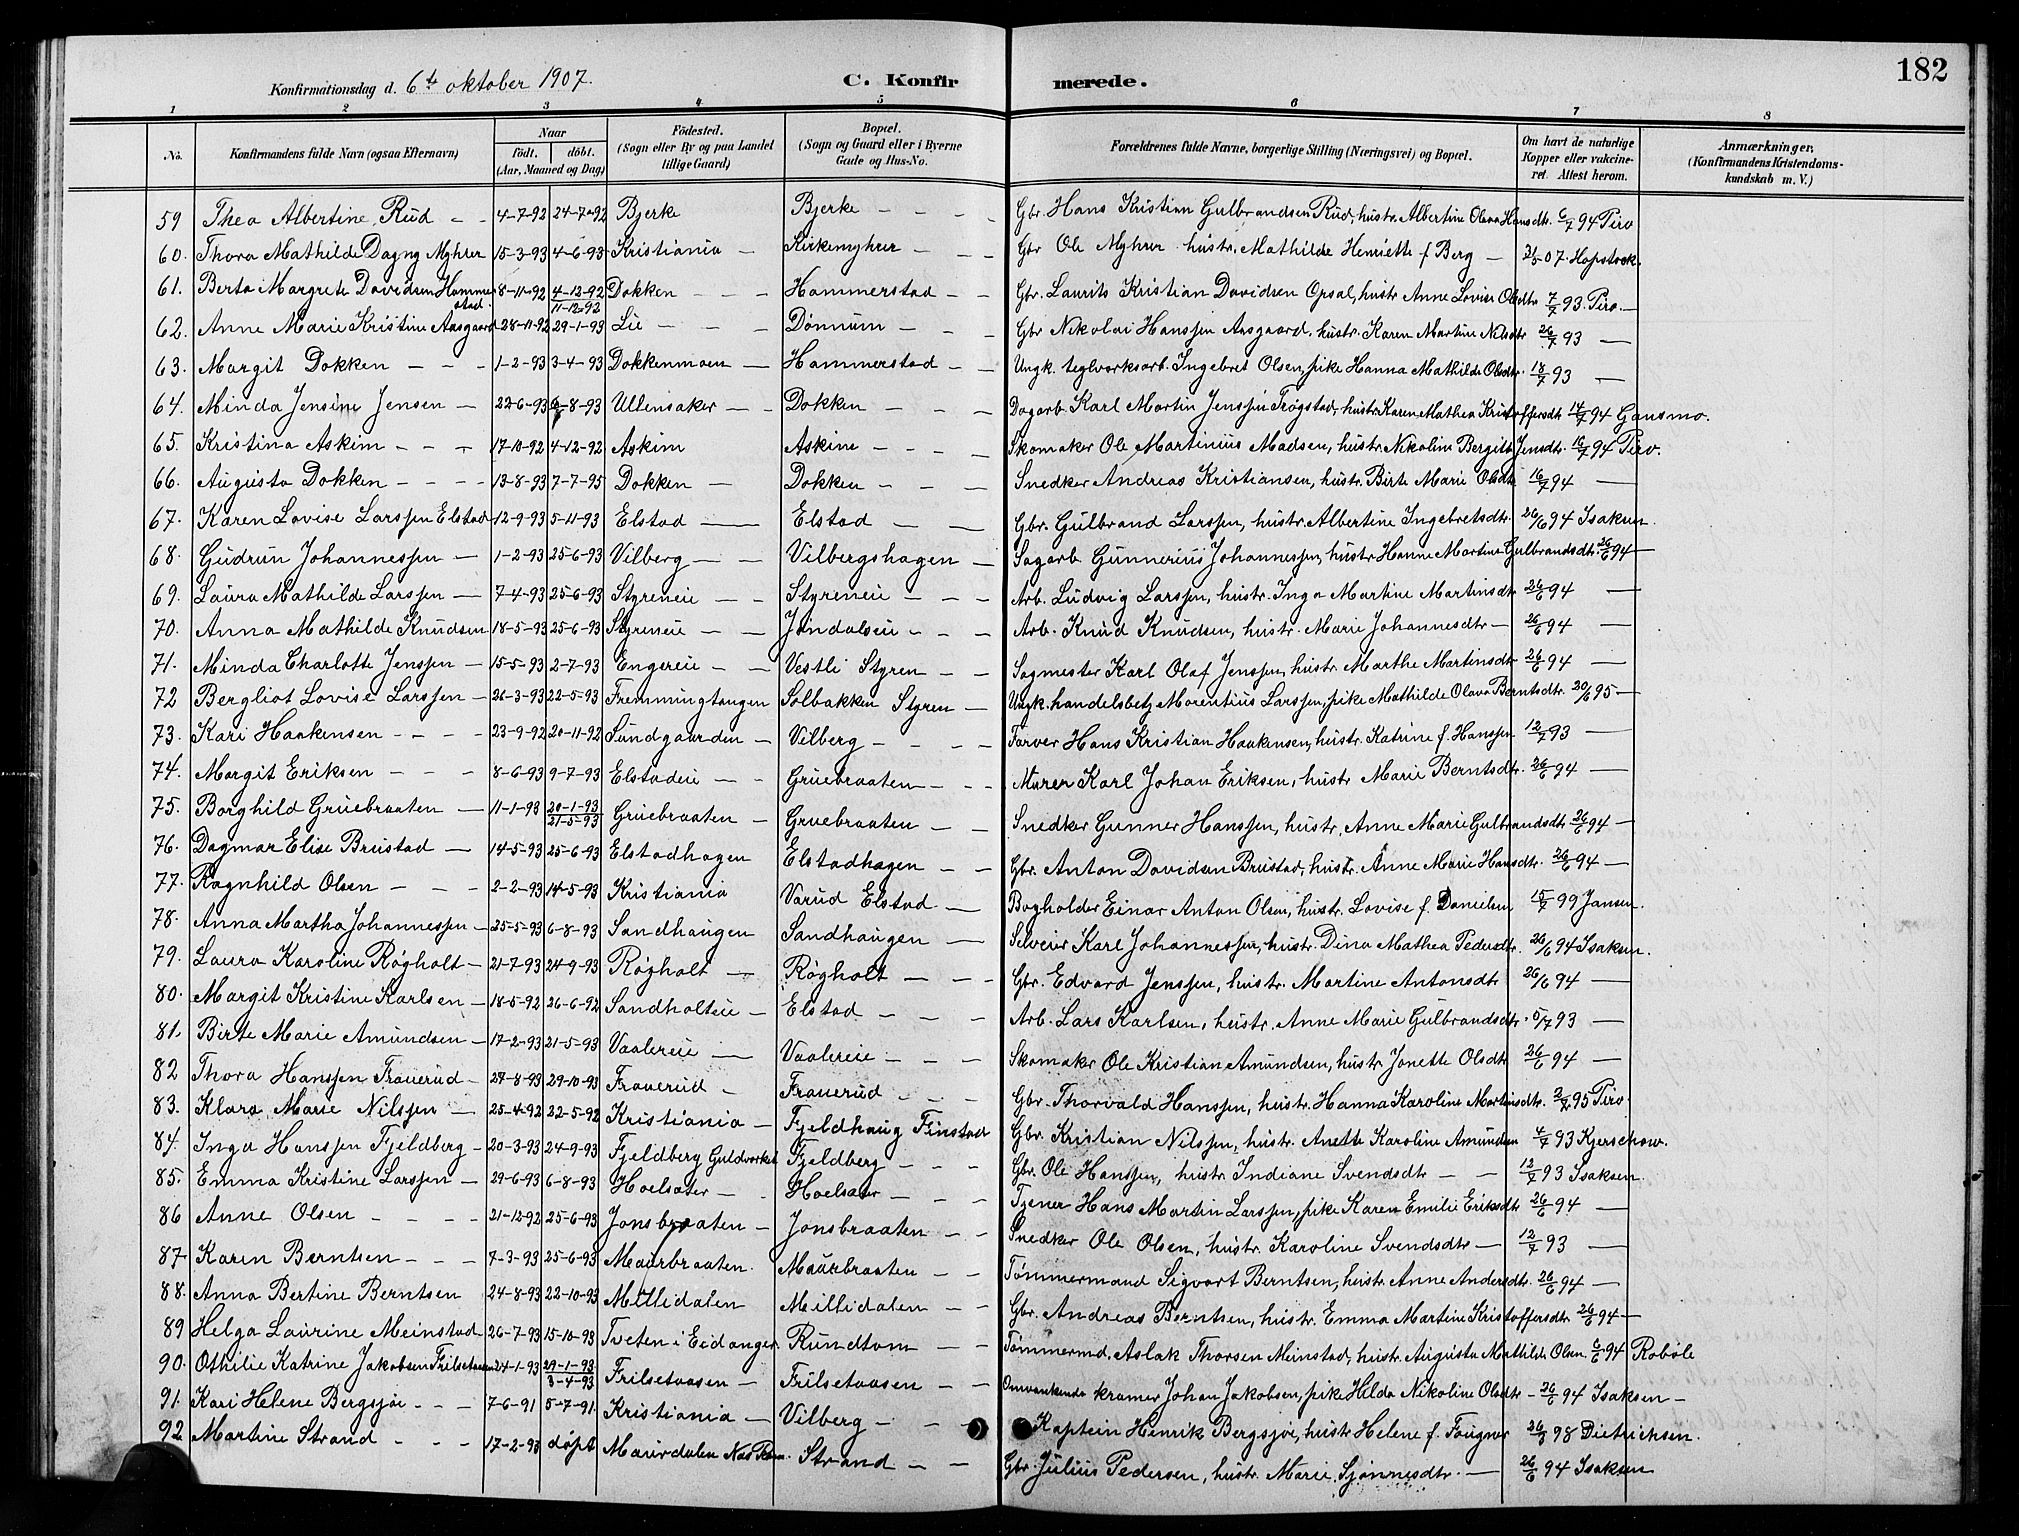 182
Konfirmationsdag d. 6te oktober 1907. C. Konfirmerede.
1 2 3 4 5 6 7 8
No. Konfirmandens fulde Navn (ogsaa Efternavn) Naar födt. döbt. (Aar, Maaned og Dag) Födested. (Sogn eller By og paa Landet tillige Gaard) Bopæl. (Sogn og Gaard eller i Byerne Gade og Hus-No. Forældrenes fulde Navne, borgerlige Stilling (Næringsvei) og Bopæl. Om havt de naturlige Kopper eller vakcineret. Attest herom. Anmærkninger. (Konfirmandens Kristendomskundskab m. V.)
59 Thea Albertine Rud - - 4-7-92 24-7-92 Bjerke Bjerke - - - Gbr. Hans Kristian Gulbrandsen Rud, hustr. Albertine Olava Hansdtr. 6/7 94 Tiro
60. Thora Mathilde Dagny Myhrer 15-3-93 4-6-93 Kristiania - Kirkemyhrer - - - Gbr Ole Myhrer hustr. Mathilde Henriette f Berg - 07. Hopstock.
61. Berta Margrete Davidsen Hammerstad. 8-11-92 4-12-92 11-12-92 Dokken - - - Hammerstad - - Gbr. Laurits Kristian Davidsen Opsal, hustr Anne Lovise Olsdtr 7/7 93. Tiro. -
62. Anne Marie Kristine Aasgaard 28-11-92 29-1-93 Lie - - - Dönnum - - - Gbr Nikolai Hanssen Aasgaard. hustr. Karen Martine Nilsdtr 26/7 93 -
63. Margit Dokken - - - 1-2-93 3-4-93 Dokkenmoen - Hammerstad - - Ungk. teglverksarb. Ingebret Olsen, pike Hanna Mathilde Olsdtr. 18/7 93 -
64. Minda Jensine Jensen - 22-6-93 6-8-93 Ullensaker - - Dokken - - - Dagarb. Karl Martin Jenssen Trøgstad, hustr. Karen Mathea Kristoffersdtr 14/7 94 Gansmo.
65. Kristina Askim - - - 17-10-92 4-12-92 Askim Askim - - - - Skomaker Ole Martinius Madsen, hustr. Nikoline Bergitte Jensdtr. 16/7 94 Tiro.
66. Augusta Dokken - - - - 13-8-93 7-7-95 Dokken - Dokken - - - Snedker Andreas Kristiansen, hustr. Birte Marie Olsdtr 16/7 94 -
67. Karen Lovise Larssen Elstad 12-9-93 5-11-93 Elstad - Elstad - - Gbr. Gulbrand Larssen, hustr. Albertine Ingebretsdtr. 26/6 94 Isaksen.
68. Gudrun Johannessen - 1-2-93 25-6-93 Vilberg - - Vilbergshagen - Sagarb Gunnerius Johannessen, hustr Hanne Martine Gulbrandsdtr. 26/6 94 -
69. Laura Mathilde Larssen - 7-4-93 25-6-93 Styreneie - - Styreneie - - - Arb. Ludvig Larssen, hustr. Inga Martine Martinsdtr 26/6 94 -
70. Anna Mathilde Knudsen 18-5-93 25-6-93 Styreneie - - Jondalseie - - - Arb. Knud Knudsen, hustr. Marie Johannesdtr - 26/6 94 -
71. Minda Charlotte Jenssen - 15-5-93 2-7-93 Engereie - - Vestli Styren - - Sagmester Karl Olaf Jenssen, hustr. Marthe Martinsdtr 26/6 94 -
72 Bergliot Lovise Larssen - 26-3-93 22-5-93 Fremmingtangen Solbakken Styren - Ungk. handelsbetj Morentius Larssen, pike Mathilde Olava Berntsdtr. 20/6 95 -
73. Kari Haakensen - - - - 23-9-92 20-11-92 Sundgaarden - Vilberg - - - - Farver Hans Kristian Haakensen, hustr. Katrine f. Hanssen 12/7 93 -
74. Margit Eriksen - - - 8-6-93 9-7-93 Elstadeie - - Gruebraaten - - - Murer Karl Johan Eriksen, hustr Marie Berntsdtr. 26/6 94 -
75. Borghild Gruebraaten - 11-1-93 20-1-93 21-5-93 Gruebraaten - Gruebraaten - - Snedker Gunner Hanssen, hustr. Anne Marie Gulbrandsdtr 26/6 94 -
76. Dagmar Elise Brustad - 14-5-93 25-6-93 Elstadhagen Elstadhagen - - Gbr. Anton Davidsen Brustad, hustr. Anne Marie Hansdtr. 26/6 94 -
77. Ragnhild Olsen - - - 2-2-93 14-5-93 Kristiania Varud Elstad - Bogholder Einar Anton Olsen, hustr. Lovise f. Danielsen 15/7 99 Jansen.
78. Anna Martha Johannessen - 25-5-93 6-8-93 Sandhaugen Sandhaugen - Selveier Karl Johannessen, hustr. Dina Mathea Pedersdtr. 26/6 94 Isaksen.
79. Laura Karoline Røgholt - 21-7-93 24-9-93 Røgholt - Røgholt - - - Gbr. Edvard Jenssen, hustr. Martine Antonsdtr 26/6 94 -
80. Margit Kristine Karlsen - 18-5-92 26-6-92 Sandholteie - Elstad - - - Arb. Lars Karlsen, hustr. Anne Marie Gulbrandsdtr. 5/7 93 -
81. Birte Marie Amundsen - 17-2-93 21-5-93 Vaalereie - Vaalereie - - - Skomaker Ole Kristian Amundsen, hustr Jonette Olsdtr 26/6 94 -
82 Thora Hanssen Frauerud - 27-8-93 29-10-93 Frauerud - Frauerud - - - Gbr. Thorvald Hanssen, hustr. Hanna Karoline Martinsdtr. 2/7 95 Tiro.
83. Klara Marie Nilssen - 25-4-92 22-5-92 Kristiania - Fjeldhaug Finstad Gbr. Kristian Nilssen, hustr. Anette Karoline Amundsen 4/7 93 Kjerschow.
84. Inga Hanssen Fjeldberg - 20-3-93 24-9-93 Fjeldberg Guldverket Fjeldberg - - - Gbr. Ole Hanssen, hustr. Indiane Svendsdtr - - 12/7 93 Isaksen.
85. Emma Kristine Larssen - 29-6-93 6-8-93 Hoelsæter - - Hoelsæter - - - Tjener Hans Martin Larssen, pike Karen Emilie Eriksdtr 26/6 94 -
86 Anne Olsen - - - - 21-12-92 25-6-93 Jonsbraaten - Jonsbraaten - - Snedker Ole Olsen, hustr. Karoline Svendsdtr - 12/7 93 -
87. Karen Berntsen - - - 7-3-93 25-6-93 Maurbraaten. Maurbraaten - - Tømmermand Sigvart Berntsen, hustr. Anne Andersdtr. 26/6 94 -
88. Anna Bertine Berntsen 24-8-93 22-10-93 Millidalen Millidalen - - Gbr. Andreas Berntsen, hustr. Emma Martine Kristoffersdtr 26/6 94 -
89 Helga Laurine Meinstad 26-7-93 15-10-93 Tveten i Eidanger Rundtom - - Tømmermd. Aslak Thorsen Meinstad, hustr. Augusta Mathilde Olsen. 6/6 94 Robøle
90. Othilie Katrine Jakobsen Frilsetaasen 24-1-93 29-1-93 3-4-93 Frilsetaasen - Frilsetaasen - - Omvankende kramer Johan Jakobsen, pike Hilda Nikoline Olsdtr - 26/6 94 Isaksen -
91. Kari Helene Bergsjøe - - - 7-6-91 5-7-91. Kristiania - Vilberg - - - Kaptein Henrik Bergsjøe, hustr Helene f. Fougner 98 Dietrichsen.
92 Martine Strand - - - 17-2-93 døpt Maurdalen Strand - - Gbr. Julius Pedersen, hustr. Marie Sjønnesdtr. - 26/6 94 Isaksen